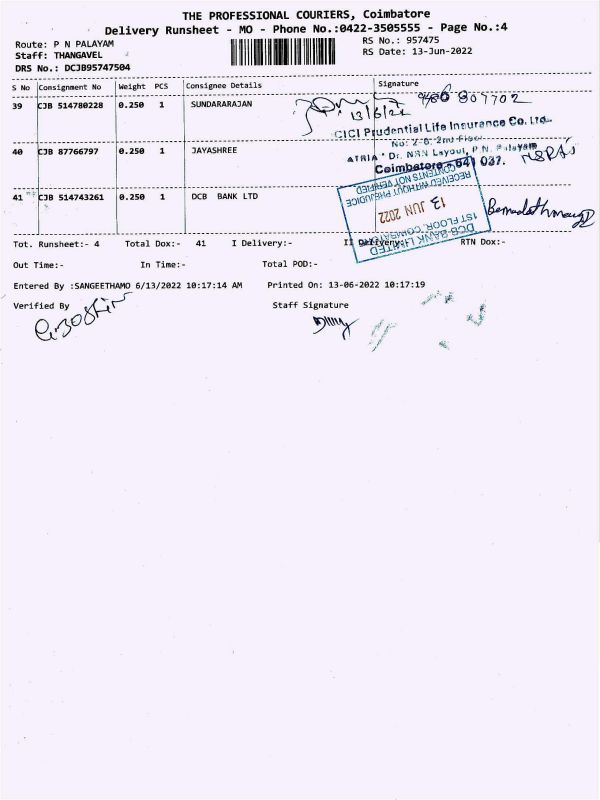 THE PROFESSIONAL COURIERS, Coimbatore
Delivery Runsheet - MO - Phone No.:0422-3505555 - Page No.:4
Route: P N PALAYAM RS No.: 957475
Staff: THANGAVEL RS Date: 13-Jun-2022
DRS No.: DCJB95747504
S No Consignment No Weight PCS Consignee Details Signature
39 CJB 514780228 0.250 1 SUNDARARAJAN
13/6/22 807702
CICI Prudential Life Insurance Co. Ltd.
No: 2-6, 2nd Floor
40 CJB 87766797 0.250 1 JAYASHREE
ATRIA Dr. NRN Layout, P.N. Palayam
Coimbatore - 641 037.
41 CJB 514743261 0.250 1 DCB BANK LTD
DCB BANK LIMITED
1ST FLOOR, COIMBATORE
13 JUN 2022
RECEIVED WITHOUT PREJUDICE
CONTENTS NOT VERIFIED
Tot. Runsheet:- 4 Total Dox:- 41 I Delivery:- II Delivery:- RTN Dox:-
Out Time:- In Time:- Total POD:-
Entered By :SANGEETHAMO 6/13/2022 10:17:14 AM Printed On: 13-06-2022 10:17:19
Verified By Staff Signature